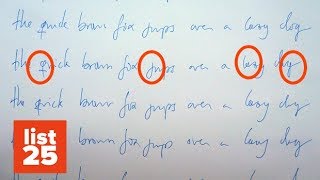 the quick brown fox jumps over a lazy dog
the quick brown fox jumps over a lazy dog
the quick brown fox jumps over a lazy dog
the quick brown fox jumps over a lazy dog
the quick brown fox jumps over a lazy dog
list
25